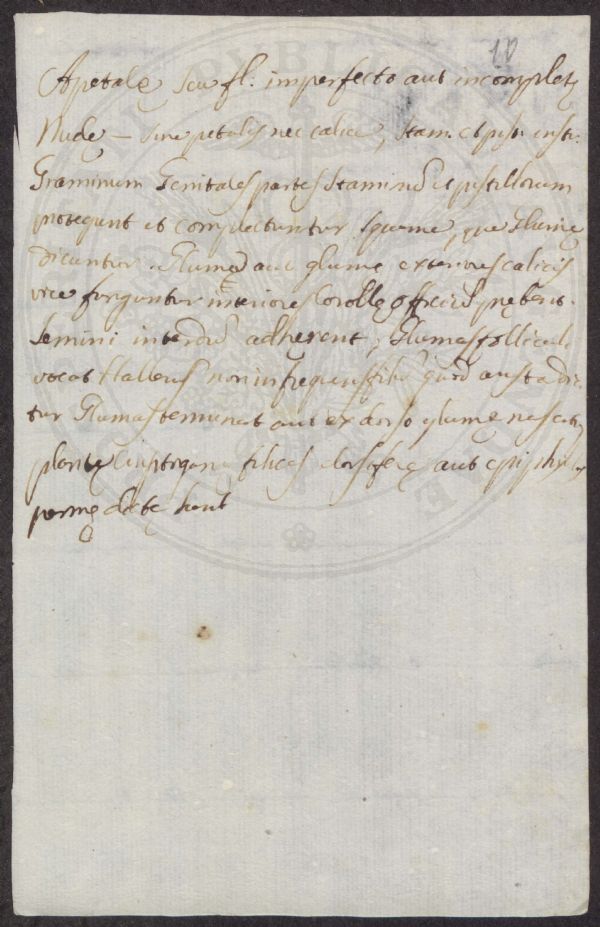 10
Apetalę seu fl: imperfecto aut incomplet
Nudę — sine petalis nec calice, stam. et pist. inst:
Graminum Genitales partes staminũ et pistillorum
protegunt et complectuntur squamę, quę Glumę
dicuntur. Glumę aut glumę exteriores calicis
vice funguntur interiores Corollę officiũ prębent.
Semini interdũ adherent, Glumas folliculũ
vocat Hallerus non infrequens filũ quod arista dic
tur Glumas terminat aut ex dorso glumę nascit,
plantę Cryptogam filices dorsiferę aut epiphyl
permę dictę